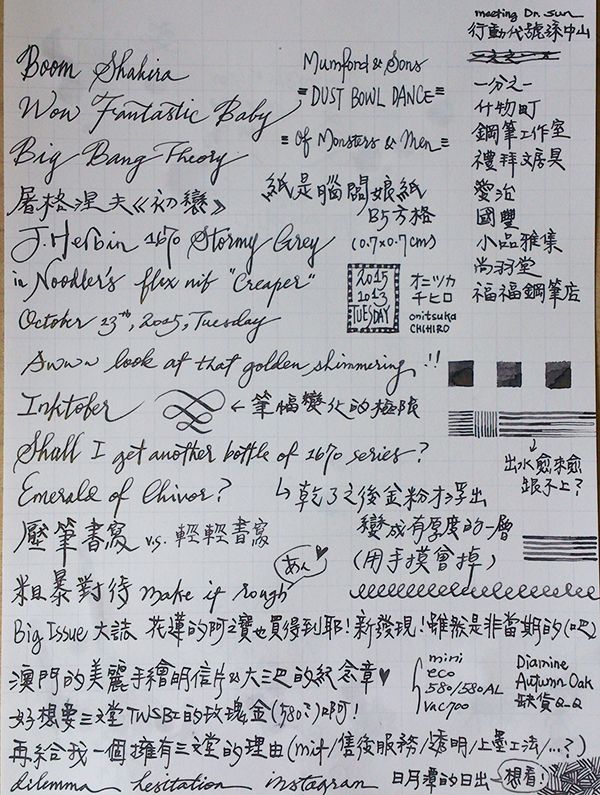 meeting Dr. Sun
行動代號孫中山
Boom Shakira
Wow Fantastic Baby
Big Bang Theory
屠格涅夫《初戀》
J. Herbin 1670 Stormy Grey
in Noodler's flex nib "Creaper"
October 13th, 2015, Tuesday
Mumford & Sons
= DUST BOWL DANCE =
= Of Monsters & Men =
紙是腦闆娘紙
B5方格
(0.7x0.7cm)
2015
10 13
TUESDAY
オニツカ
チヒロ
onitsuka
CHIHIRO
一分之一
什物町
鋼筆工作室
禮拜文房具
愛治
國豐
小品雅集
尚羽堂
福福鋼筆店
Awww look at that golden shimmering !!
Inktober
←筆幅變化的極限
Shall I get another bottle of 1670 series?
Emerald of Chivor?
↳乾了之後金粉才浮出
變成有厚度的一層
(用手摸會掉)
↓
出水愈來愈
跟不上?
壓筆書寫 v.s. 輕輕書寫
粗暴對待 make it rough
あん♥
Big Issue 大誌 花蓮的阿之寶也買得到耶!新發現!雖然是非當期的(吧)
澳門的美麗手繪明信片&大三巴的紀念章♥
好想要三文堂TWSBI的玫瑰金(580)啊!
mini
eco
580/580AL
vac700
Diamine
Autumn Oak
缺貨Q_Q
再給我一個擁有三文堂的理由(mit/售後服務/透明/上墨工法/...?)
dilemma hesitation instagram
日月潭的日出
想看!